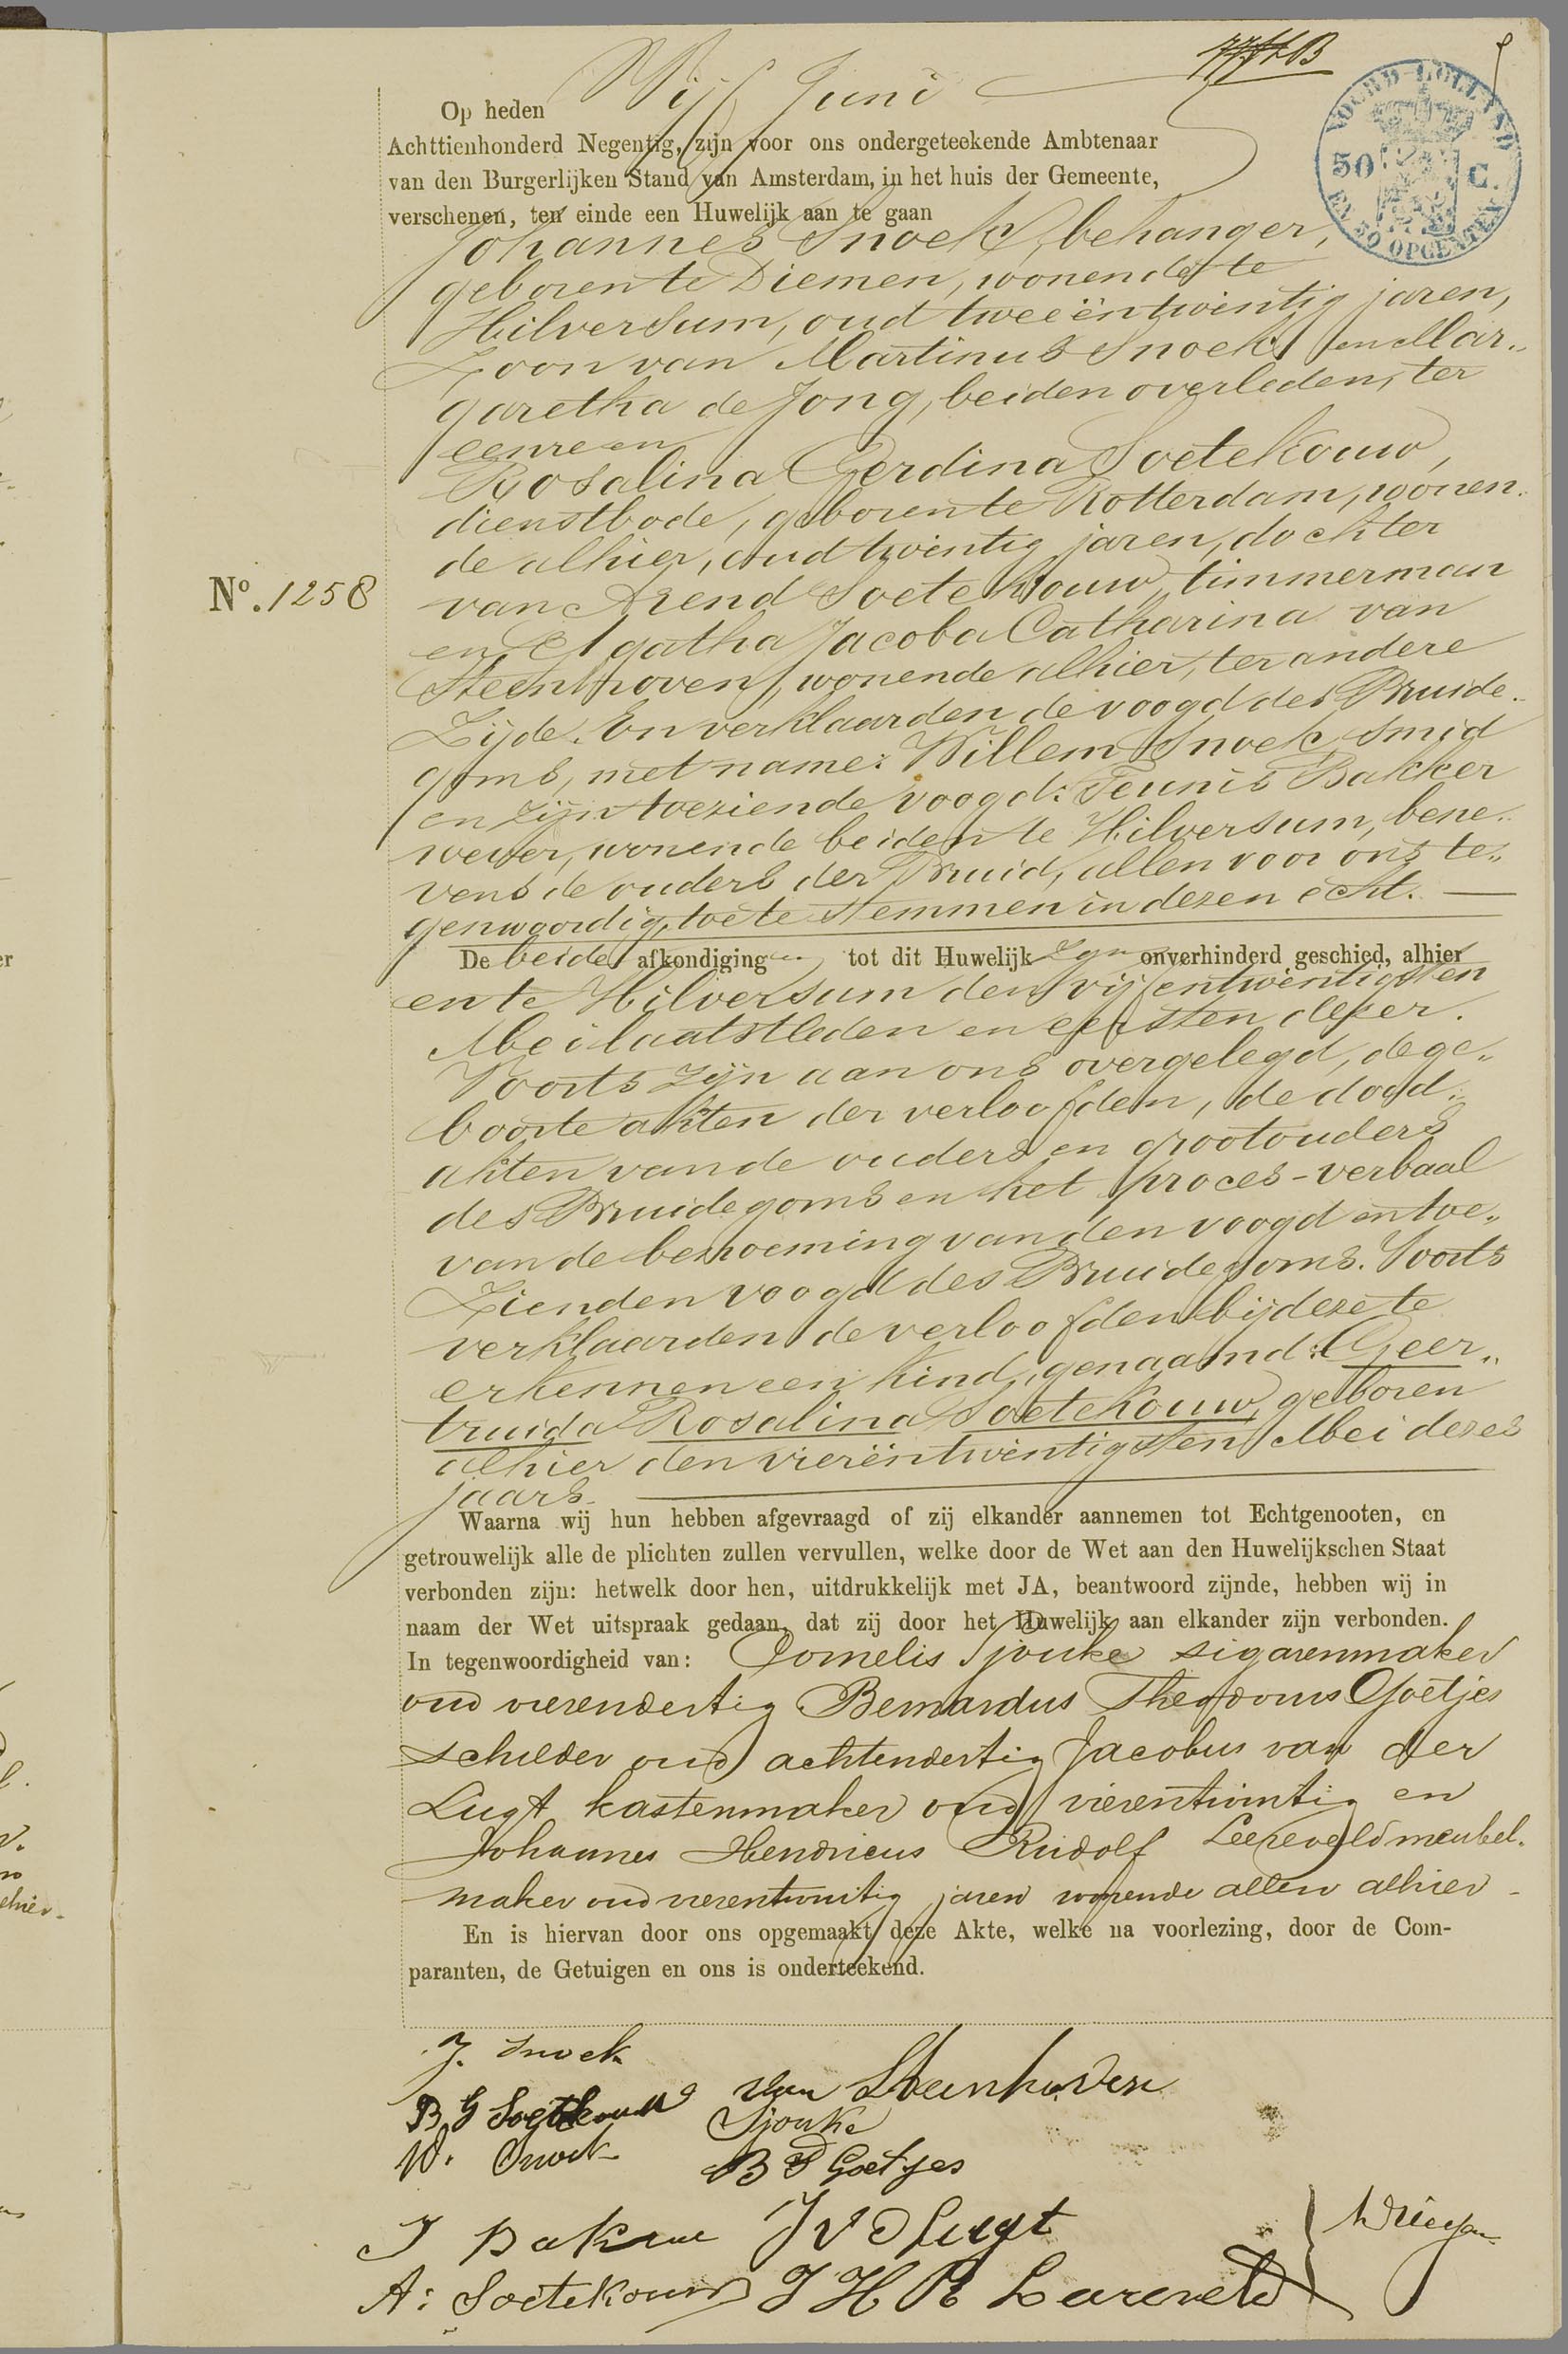 Op heden Vijf Juni
Achttienhonderd Negentig, zijn voor ons ondergeteekende Ambtenaar
van den Burgerlijken Stand van Amsterdam, in het huis der Gemeente,
verschenen, ten einde een Huwelijk aan te gaan
NOORD-HOLLAND
50 C.
EN 50 OPCENTEN
Johannes Snoek, behanger,
geboren te Diemen, wonende te
Hilversum, oud tweeëntwintig jaren,
Zoon van Martinus Snoek en Mar„
garetha de Jong, beiden overleden, ter
eenre en
Rosalina Gerdina Soetekouw,
dienstbode, geboren te Rotterdam, wonen„
de alhier, oud twintig jaren, dochter
No. 1258
van Arend Soetekouw, timmerman
en Agatha Jacoba Catharina van
Steenhoven, wonende alhier, ter andere
Zijde. En verklaarden de voogd des Bruide„
goms, met name: Willem Snoek, smid
en zijn toeziende voogd: Teunis Bakker
wever, wonende beiden te Hilversum, bene„
vens de ouders der Bruid, allen voor ons te„
genwoordig, toe te stemmen in dezen echt.
De beide afkondigingen tot dit Huwelijk zijn onverhinderd geschied, alhier
en te Hilversum den vijfentwintigsten
Mei laatstleden en eersten dezer.
Voorts zijn aan ons overgelegd, de ge„
boorte akten der verloofden, de dood„
akten van de ouders en grootouders
des Bruidegoms en het proces-verbaal
van de benoeming van den voogd en toe„
Zienden voogd des Bruidegoms. Voorts
verklaarden de verloofden bij deze te
erkennen een kind, genaamd: Geer„
truida Rosalina Soetekouw, geboren
alhier den vierëntwintigsten Mei dezes
jaars.
Waarna wij hun hebben afgevraagd of zij elkander aannemen tot Echtgenooten, en
getrouwelijk alle de plichten zullen vervullen, welke door de Wet aan den Huwelijkschen Staat
verbonden zijn: hetwelk door hen, uitdrukkelijk met JA, beantwoord zijnde, hebben wij in
naam der Wet uitspraak gedaan, dat zij door het Huwelijk aan elkander zijn verbonden.
In tegenwoordigheid van: Cornelis Sjouke sigarenmaker
oud vierendertig Bernardus Theodorus Goetjes
schilder oud achtendertig Jacobus van der
Lugt kastenmaker oud vierentwintig en
Johannes Hendricus Rudolf Leereveld meubel„
maker oud vierentwintig jaren wonende allen alhier
En is hiervan door ons opgemaakt deze Akte, welke na voorlezing, door de Com-
paranten, de Getuigen en ons is onderteekend.
J. Snoek
R G Soetekouw van Steenhoven
W. Snoek Sjouke
B T Goetjes
T Bakker J V D Lugt
A: Soetekouw J H R Leereveld